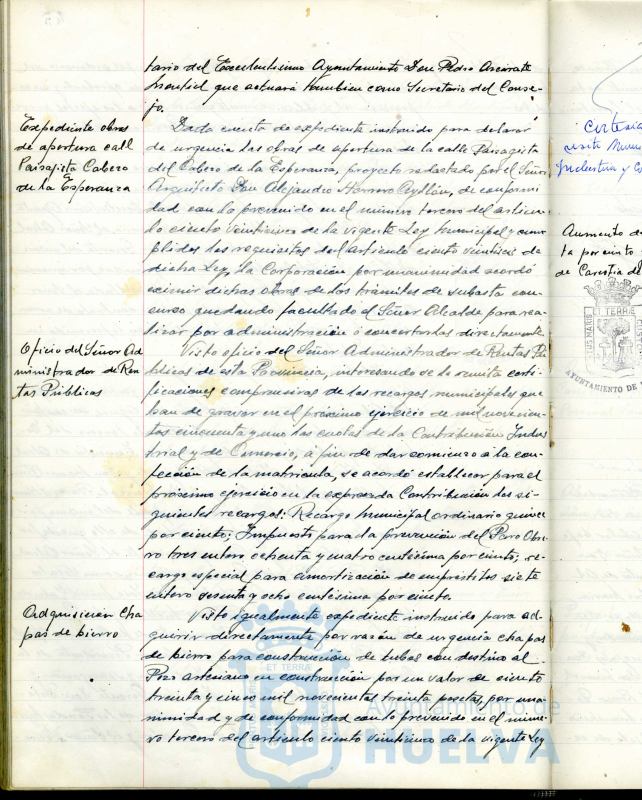 tario del Excelentisimo Ayuntamiento Don Pedro Azcárate
Montiel que actuará tambien como Secretario del Conse-
jo.
Expediente obras
de apertura call
Paisajista Cabezo
de la Esperanza
Dada cuenta de expediente instruido para declarar
de urgencia las obras de apertura de la calle Paisagista
del Cabezo de la Esperanza, proyecto redactado por el Señor
Arquitecto Don Alejandro Herrero Ayllón, de conformi
dad con lo prevenido en el número tercero del artícu-
lo ciento veinticinco de la vigente Ley Municipal y cum-
plidos los requisitos del articulo ciento veintiseis de
dicha Ley, la Corporación por unanimidad acordó
eximir dichas obras de los trámites de subasta con-
curso quedando facultado el Señor Alcalde para rea-
lizar por administración ó concertarlas directamente.
Oficio del Señor Ad
ministrador de Ren
tas Públicas
Visto oficio del Señor Administrador de Rentas Pú-
blicas de esta Provincia, interesando se le remita certi-
ficaciones comprensivas de los recargos municipales que
han de gravar en el próximo ejercicio de mil novecien-
tos cincuenta y uno las cuotas de la Contribución Indus
trial y de Comercio, á fin de dar comienzo a la con-
fección de la matricula, se acordó establecer para el
próximo ejercicio en la expresada Contribución los si-
guientes recargos: Recargo Municipal ordinario quince
por ciento; Impuesto para la prevención del Paro Obre-
ro tres entero ochenta y cuatro centésima por ciento; re-
cargo especial para amortización de empréstitos siete
entero sesenta y ocho centésima por ciento.
Adquisición cha
pas de hierro
Visto igualmente expediente instruido para ad-
quirir directamente por razón de urgencia chapas
de hierro para construcción de tubos con destino al
Pozo artesiano en construcción por un valor de ciento
treinta y cinco mil novecientas treinta pesetas por una-
nimidad y de conformidad con lo prevenido en el núme-
ro tercero del articulo ciento veinticinco de la vigente Ley
Cortesía
visita
Industria y
Aumento de
ta por ciento
de Carestia de
ET TERRAE
AYUNTAMIENTO DE
ET TERRAE
Ayuntamiento de
HUELVA